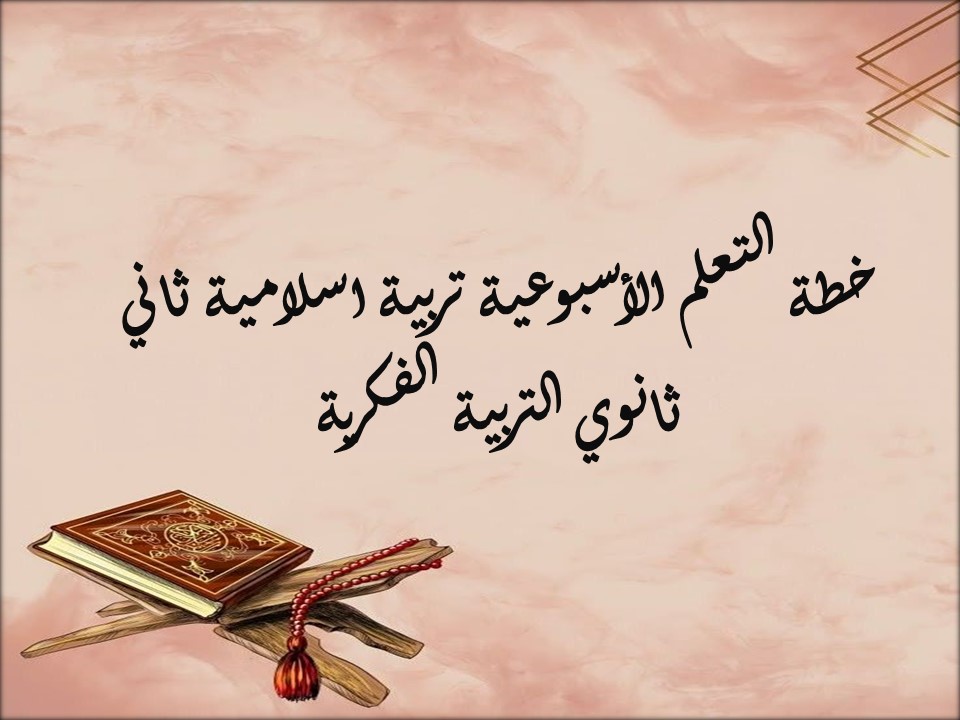 خطة التعلم الأسبوعية تربية اسلامية ثاني
ثانوي التربية الفكرية